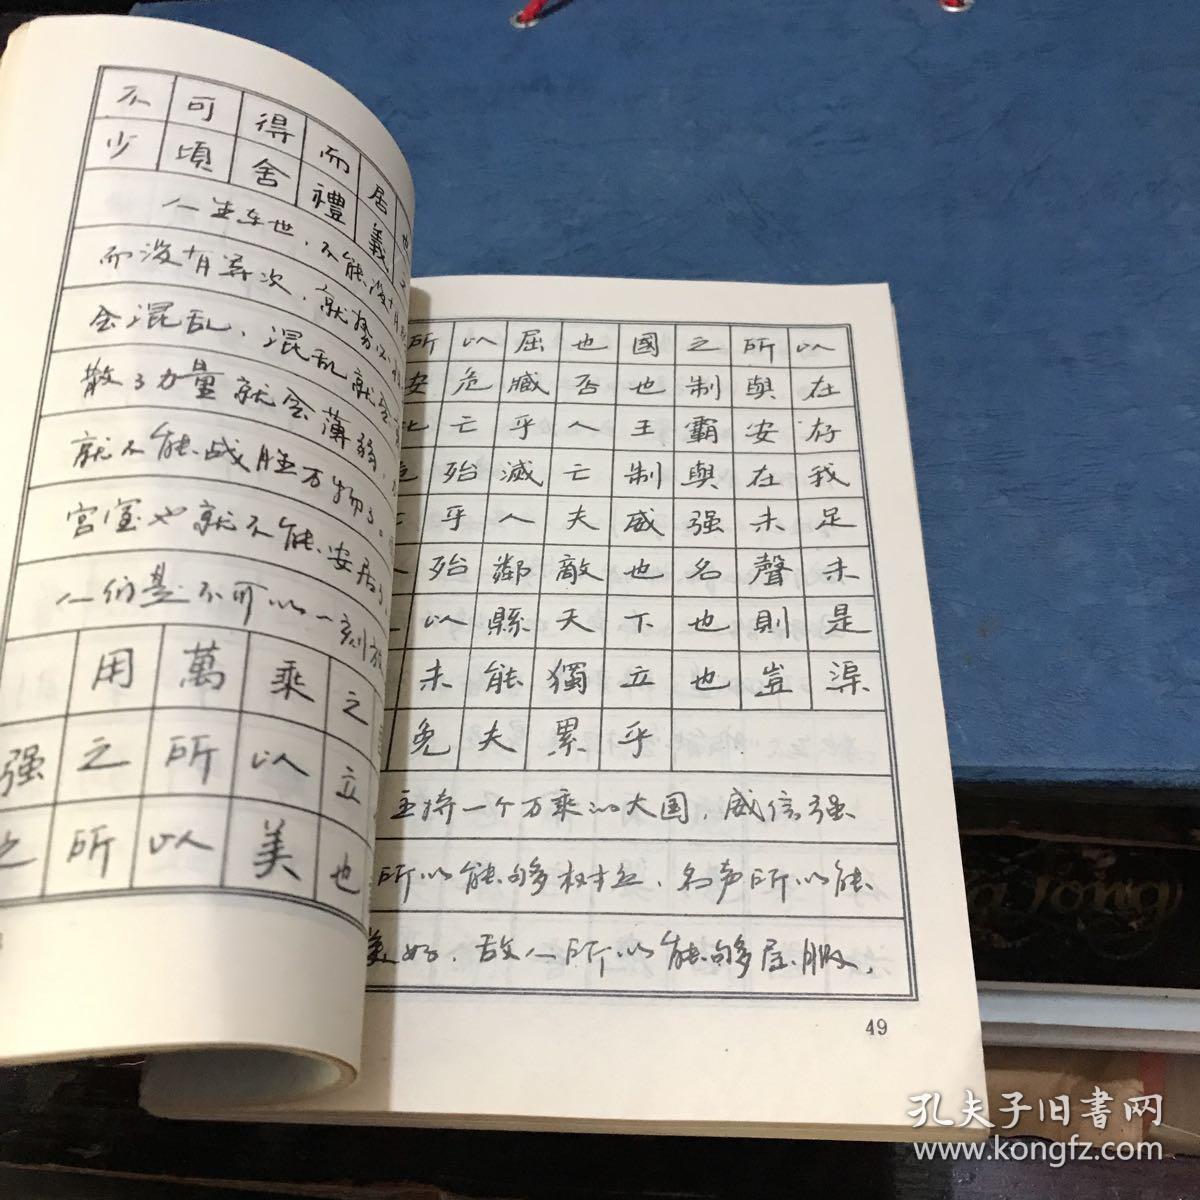 不可得而居也
少頃舍禮義之
人生在世，不能没有
而没有等次，就
会混乱，混乱就会
散了力量就会薄弱，
就不能战胜万物了。
宫室也就不能安居了
人们是不可以一刻放
用萬乘之
强之所以立
之所以美也
所以屈也國之所以
安危臧否也制與在
此亡乎人王霸安存
危殆滅亡制與在我
亡乎人夫威强未足
殆鄰敵也名聲未
以縣天下也則是
未能獨立也豈渠
免夫累乎
主持一个万乘的大国，威信强
所以能够树立，名声所以能
美好，敌人所以能够屈服，
49
孔夫子旧書网
www.kongfz.com